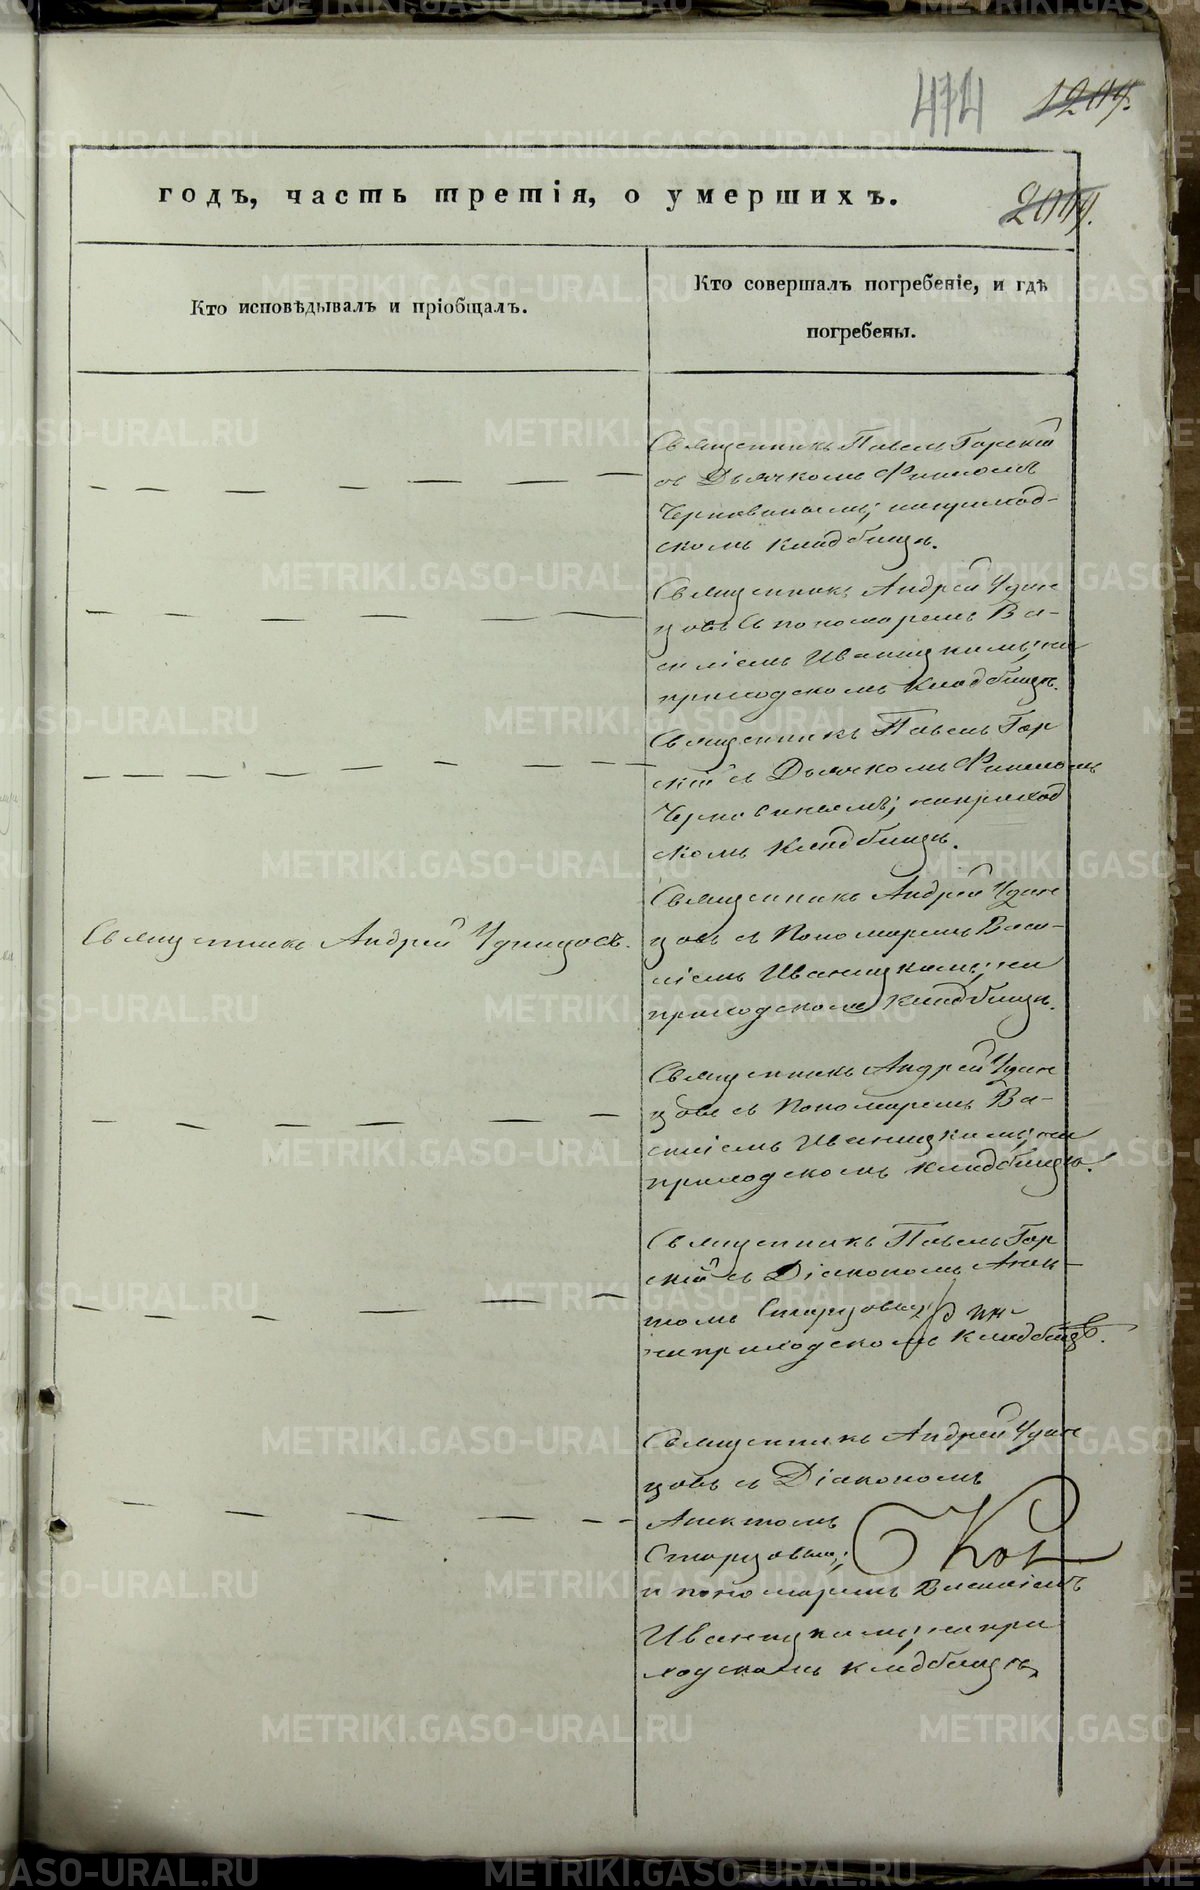 474
годъ, часть третія, о умершихъ.
Кто исповѣдывалъ и пріобщалъ.
Кто совершалъ погребеніе, и гдѣ
погребены.
Священникъ Павелъ Горскій
съ Дьячкомъ
на приход-
скомъ кладбищѣ.
Священникъ Андрей Удин
цовъ съ пономаремъ Ва-
силіемъ Иваницкимъ; на
приходскомъ кладбищѣ.
Священникъ Павелъ Гор
скій съ Дьячкомъ
на приход
скомъ кладбищѣ.
Священникъ Андрей Удинцовъ.
Священникъ Андрей Удин
цовъ съ Пономаремъ Васи-
ліемъ Иваницкимъ; на
приходскомъ кладбищѣ.
Священникъ Андрей Удин
цовъ съ Пономаремъ Ва-
силіемъ Иваницкимъ; на
приходскомъ кладбищѣ.
Священникъ Павелъ Гор
скій съ Діакономъ
на приходскомъ кладбищѣ.
Священникъ Андрей Удин
цовъ съ Діакономъ
и пономаремъ Василіемъ
Иваницкимъ; на при
ходскомъ кладбищѣ
METRIKI.GASO-URAL.RU